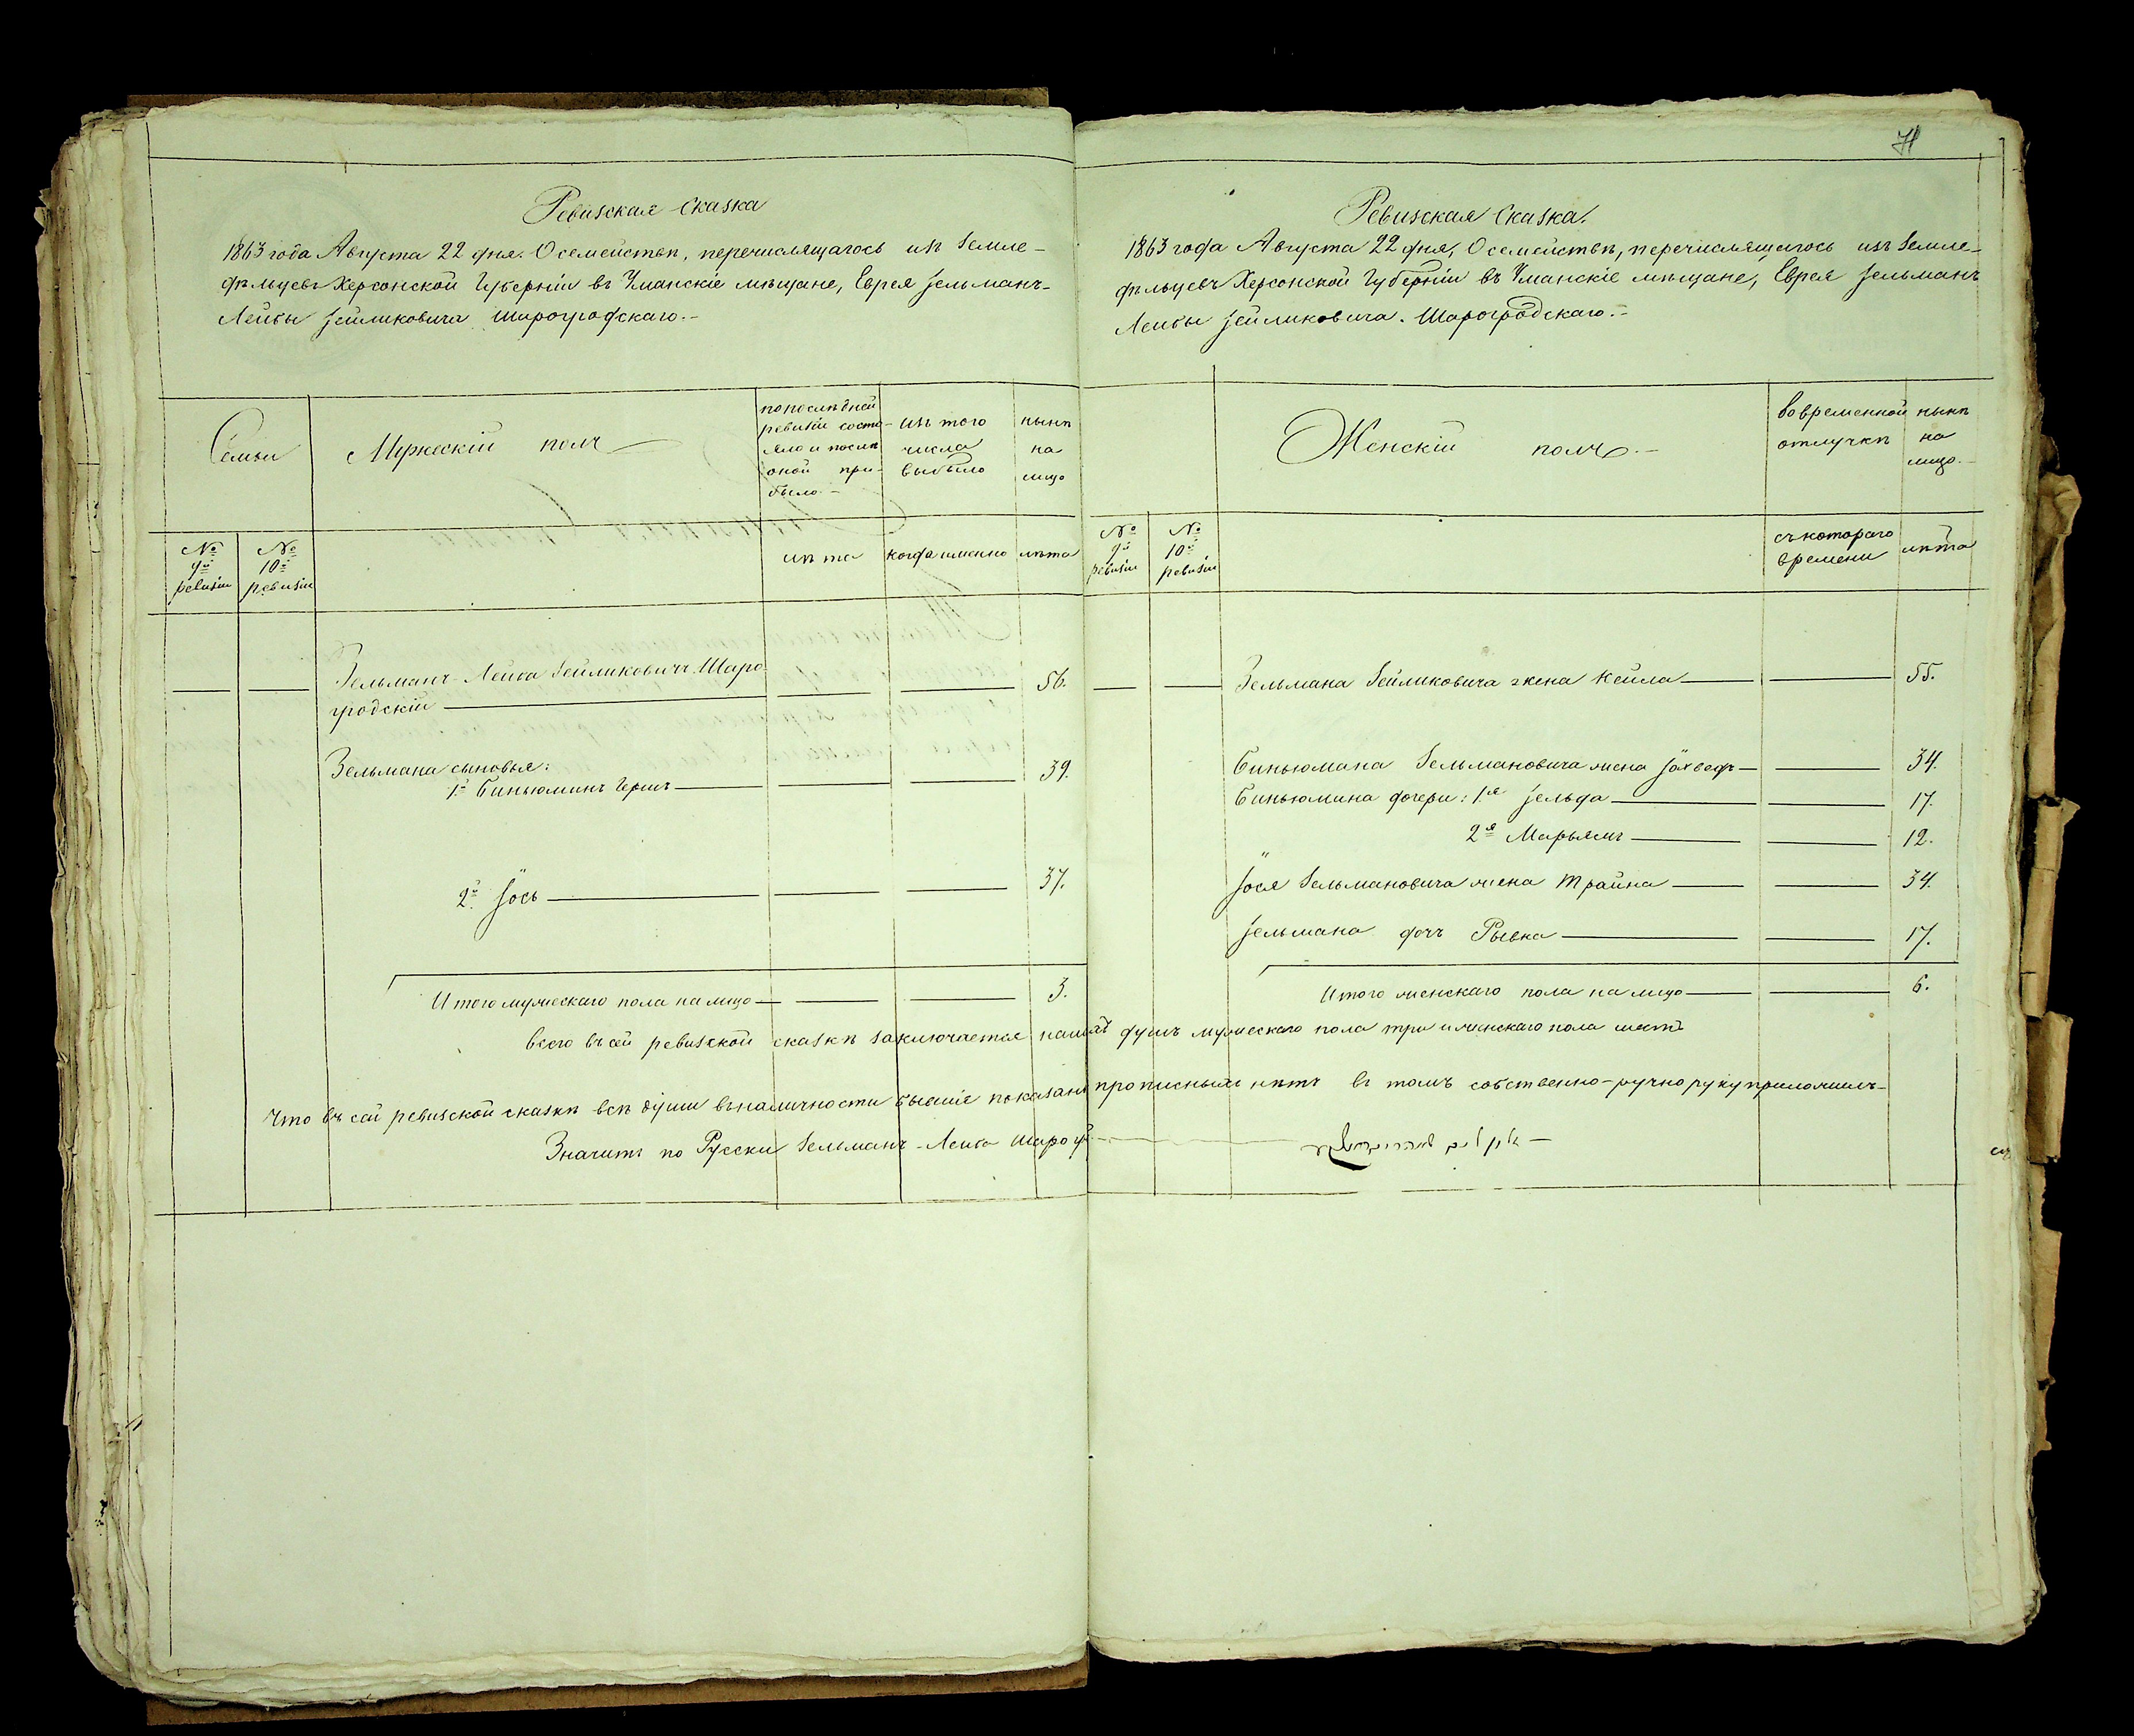 Ревизская Сказка
1863 года Августа 22 дня. О семействѣ, перечисляющагось изъ Земле-
дѣльцевъ Херсонской Губерніи въ Уманскіе мѣщане, Еврея Зельманъ-
Лейбы Зейликовича Шарогродскаго.-
Семьи
Мужескій полъ
по послѣдней
ревизіи состо-
яло и послѣ
оной при-
было.-
изъ того
числа
выбыло
нынѣ
на
лицо
№ 9й ревизіи
№ 10й ревизіи
лѣта
когда именно
лѣта
Зельманъ-Лейба Зейликовичъ Шаро-
гродскій
56.
Зельмана сыновья:
1й Биньюминъ Гершъ 39.
2й Іось 37.
Итого мужескаго пола на лицо 3.
71
Ревизская Сказка.
1863 года Августа 22 дня, О семействѣ, перечисляющагось изъ Земле-
дѣльцевъ Херсонской Губерніи въ Уманскіе мѣщане, Еврея Зельманъ
Лейбы Зейликовича. Шарогродскаго.-
Женскій полъ.-
во временной
отлучкѣ
нынѣ
на
лицо.-
№ 9й ревизіи
№ 10й ревизіи
съ котораго
времени
лѣта
Зельмана Зейликовича жена Кейла 55.
Биньюмана Зельмановича жена Іохведъ 34.
Биньюмина дочери: 1я Зельда 17.
2я Марьямъ 12.
Іося Зельмановича жена Трайна 34.
Зельмана дочь Рывка 17.
Итого женскаго пола на лицо 6.
Всего въ сей ревизской сказкѣ заключается душъ мужескаго пола три и женскаго пола шесть
Что въ сей ревизской сказкѣ всѣ души въ наличности бывшіе показаны прописныхъ нѣтъ въ томъ собственно-ручно руку приложилъ-
Значитъ по Русски Зельманъ-Лейба